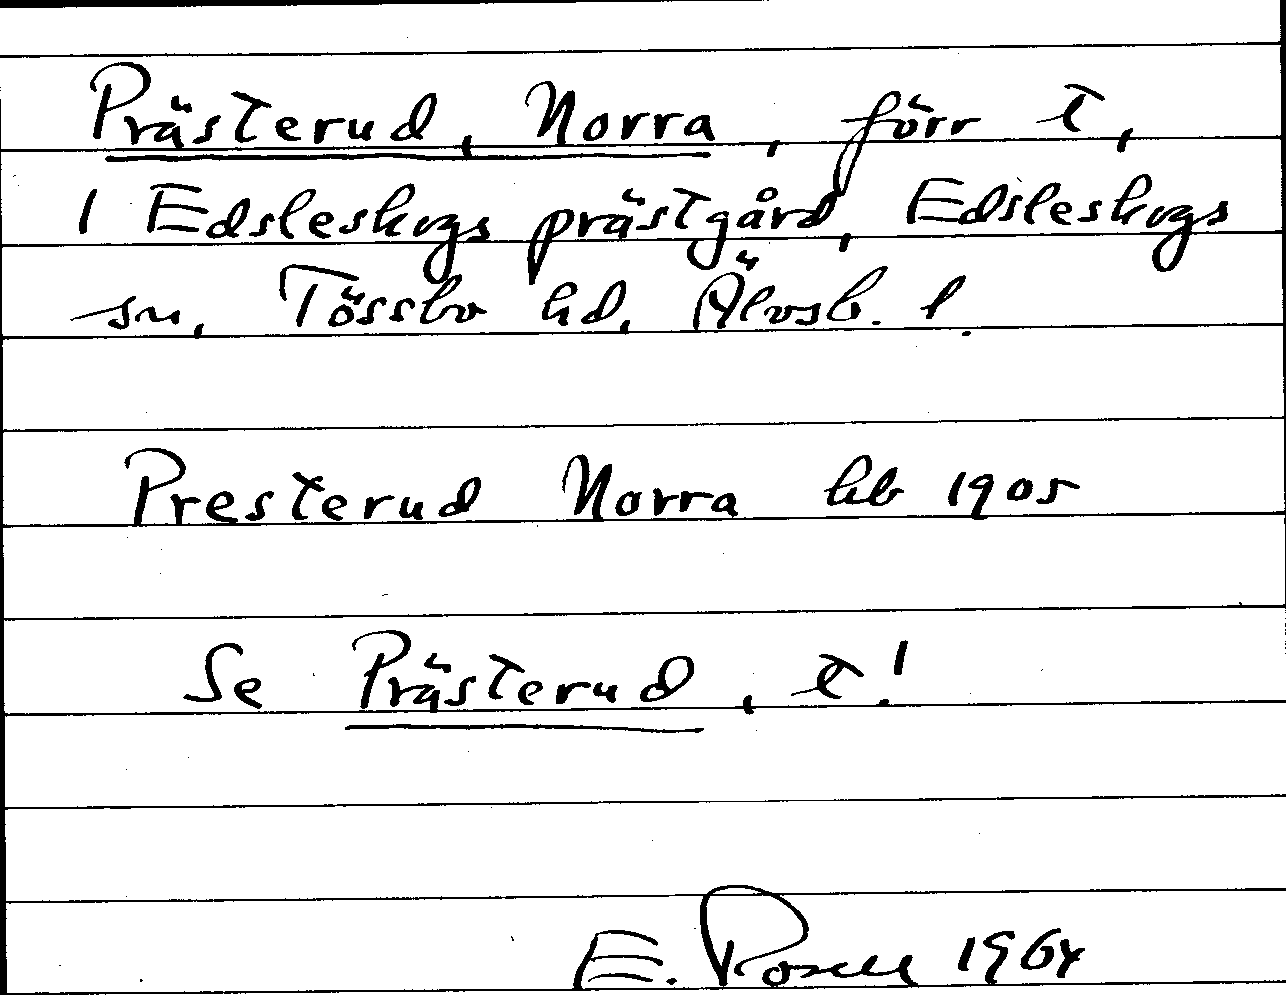 Prästerud, Norra, förr t,
1 Edsleskogs prästgård, Edsleskogs
sn, Tössbo hd, Älvsb. l.
Presterud Norra hb 1905
Se Prästerud, t!
E. Rosell 1964